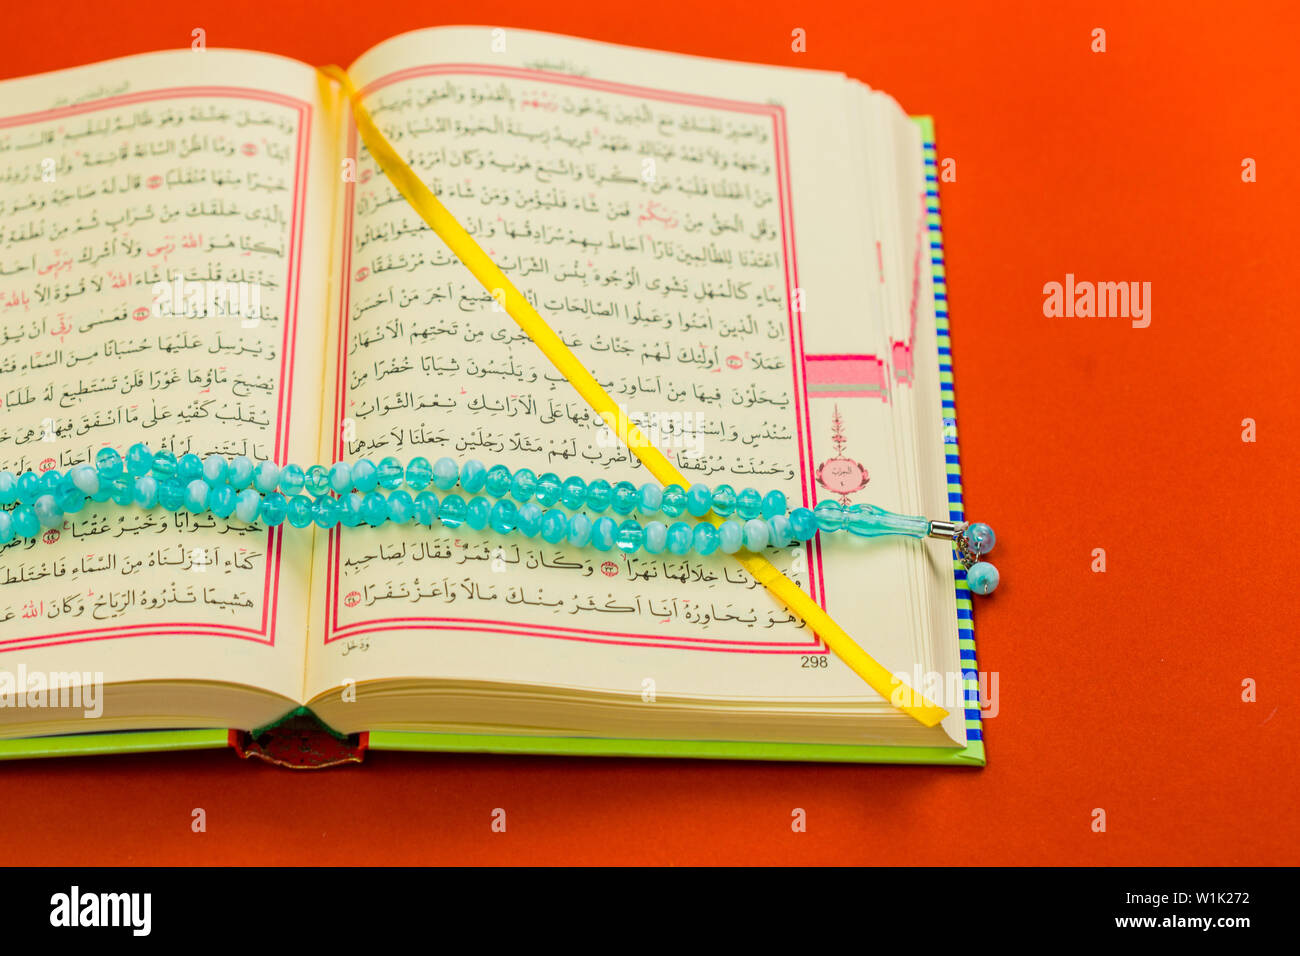 وَاصْبِرْ نَفْسَكَ مَعَ الَّذِينَ يَدْعُونَ رَبَّهُمْ بِالْغَدٰوةِ وَالْعَشِيِّ
وَجْهَهُ وَلَا تَعْدُ عَيْنَاكَ عَنْهُمْ تُرِيدُ زِينَةَ الْحَيٰوةِ الدُّنْيَا
مَنْ اَغْفَلْنَا قَلْبَهُ عَنْ ذِكْرِنَا وَاتَّبَعَ هَوٰيهُ وَكَانَ اَمْرُهُ
وَقُلِ الْحَقُّ مِنْ رَبِّكُمْ فَمَنْ شَاءَ فَلْيُؤْمِنْ وَمَنْ شَاءَ اِنَّا
اَعْتَدْنَا لِلظَّالِمِينَ نَارًا اَحَاطَ بِهِمْ سُرَادِقُهَا وَاِنْ يُغَاثُوا
بِمَاءٍ كَالْمُهْلِ يَشْوِي الْوُجُوهَ بِئْسَ الشَّرَابُ مُرْتَفَقًا ﴿٢٩﴾
اِنَّ الَّذِينَ اٰمَنُوا وَعَمِلُوا الصَّالِحَاتِ اِنَّا نُضِيعُ اَجْرَ مَنْ اَحْسَنَ
عَمَلًا ﴿٣٠﴾ اُولٰئِكَ لَهُمْ جَنَّاتُ تَجْرِي مِنْ تَحْتِهِمُ الْاَنْهَارُ
يُحَلَّوْنَ فِيهَا مِنْ اَسَاوِرَ مِنْ وَيَلْبَسُونَ ثِيَابًا خُضْرًا مِنْ
سُنْدُسٍ وَاِسْتَبْرَقٍ فِيهَا عَلَى الْاَرَائِكِ نِعْمَ الثَّوَابُ
وَحَسُنَتْ مُرْتَفَقًا وَاضْرِبْ لَهُمْ مَثَلًا رَجُلَيْنِ جَعَلْنَا لِاَحَدِهِمَا
خِلَالَهُمَا نَهَرًا ﴿٣٣﴾ وَكَانَ لَهُ ثَمَرٌ فَقَالَ لِصَاحِبِهِ
وَهُوَ يُحَاوِرُهُ اَنَا اَكْثَرُ مِنْكَ مَالًا وَاَعَزُّ نَفَرًا ﴿٣٤﴾
وَدَخَلَ
298
الحزب
وَدَخَلَ جَنَّتَهُ وَهُوَ ظَالِمٌ لِنَفْسِهِ قَالَ
اَبَدًا ﴿٣٥﴾ وَمَا اَظُنُّ السَّاعَةَ قَائِمَةً وَلَئِنْ رُدِدْتُ
خَيْرًا مِنْهَا مُنْقَلَبًا ﴿٣٦﴾ قَالَ لَهُ صَاحِبُهُ وَهُوَ
بِالَّذِي خَلَقَكَ مِنْ تُرَابٍ ثُمَّ مِنْ نُطْفَةٍ
لٰكِنَّا هُوَ اللّٰهُ رَبِّي وَلَا اُشْرِكُ بِرَبِّي
جَنَّتَكَ قُلْتَ مَا شَاءَ اللّٰهُ لَا قُوَّةَ اِلَّا بِاللّٰهِ
مِنْكَ مَالًا وَوَلَدًا ﴿٣٩﴾ فَعَسٰى رَبِّي اَنْ
وَيُرْسِلَ عَلَيْهَا حُسْبَانًا مِنَ السَّمَاءِ
يُصْبِحَ مَاؤُهَا غَوْرًا فَلَنْ تَسْتَطِيعَ لَهُ طَلَبًا
يُقَلِّبُ كَفَّيْهِ عَلٰى مَا اَنْفَقَ فِيهَا وَهِيَ
اَحَدًا ﴿٤٢﴾
خَيْرٌ ثَوَابًا وَخَيْرٌ عُقْبًا ﴿٤٤﴾
كَمَاءٍ اَنْزَلْنَاهُ مِنَ السَّمَاءِ فَاخْتَلَطَ
هَشِيمًا تَذْرُوهُ الرِّيَاحُ وَكَانَ اللّٰهُ
alamy
a
alamy
Image ID: W1K272
www.alamy.com